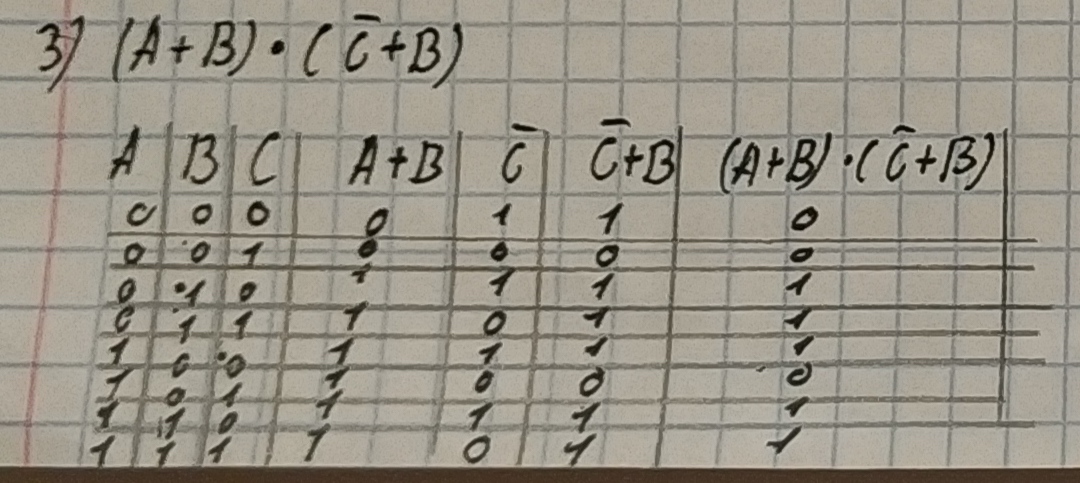 3) (A+B)·(C̄+B)
A B C A+B C̄ C̄+B (A+B)·(C̄+B)
0 0 0 0 1 1 0
0 0 1 0 0 0 0
0 1 0 1 1 1 1
0 1 1 1 0 1 1
1 0 0 1 1 1 1
1 0 1 1 0 0 0
1 1 0 1 1 1 1
1 1 1 1 0 1 1